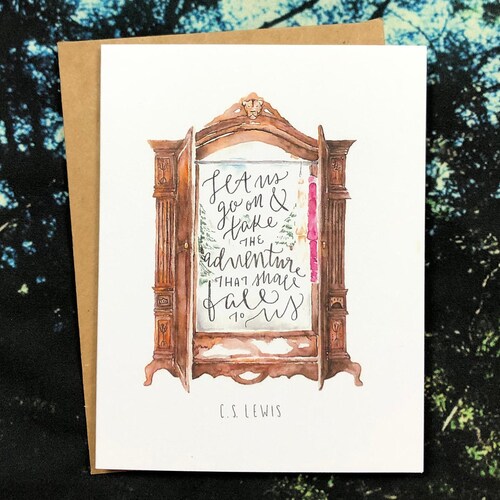 let us
go on &
take
THE
adventure
THAT shall
fall
TO us
C.S. LEWIS